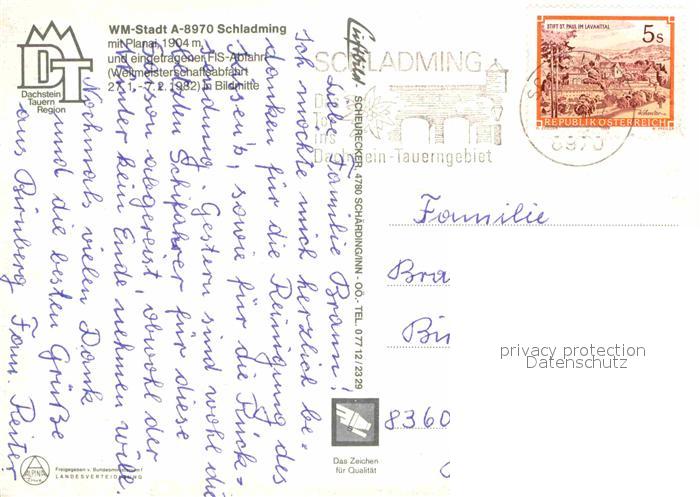 WM-Stadt A-8970 Schladming
mit Planai, 1904 m,
und eingetragener FIS-Abfahrt
(Weltmeisterschaftsabfahrt
27.1.-7.2.1982) in Bildmitte
Dachstein
Tauern
Region
DT
Liebe Familie Braun!
Ich möchte mich herzlich be-
danken für die Reinigung des
Ausweis, sowie für die Rück-
sendung. Gestern sind wohl die
letzten Schifahrer für diese
Saison abgereist, obwohl der
Winter kein Ende nehmen will.
Nochmals vielen Dank
und die besten Grüße
aus Birnberg Fam. Reiter
Luftbild
SCHEURECKER, 4780 SCHÄRDING/INN - OÖ., TEL. 0 77 12 / 23 29
SCHLADMING
Dachstein-Tauerngebiet
8970
STIFT ST. PAUL IM LAVANTTAL
5 S
REPUBLIK ÖSTERREICH
Familie
Bra
Bi
8360
privacy protection
Datenschutz
Das Zeichen
für Qualität
ALPINA
Freigegeben v. Bundesminist. f.
LANDESVERTEIDIGUNG